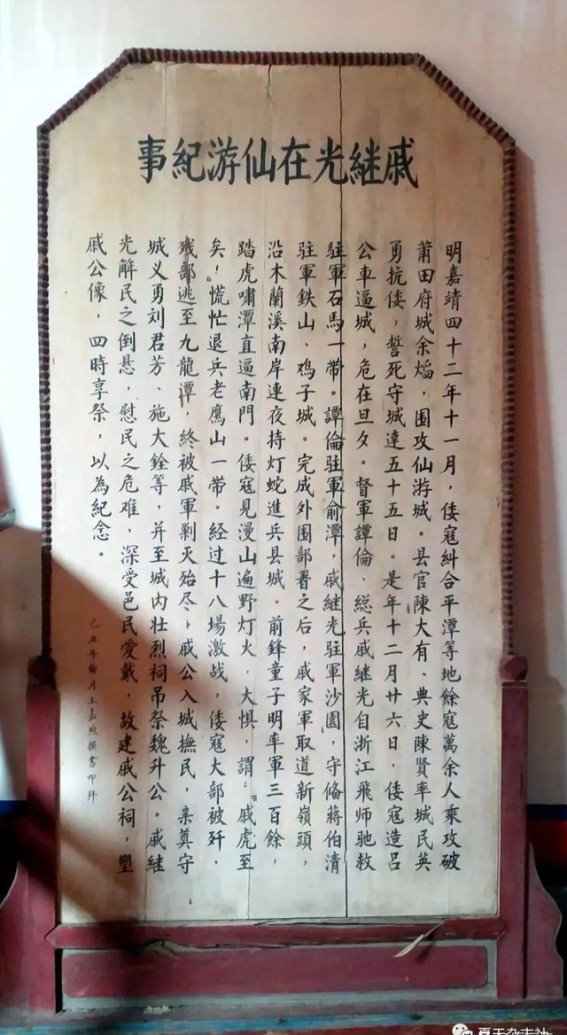 戚継光在仙游紀事
明嘉靖四十二年十一月，倭寇糾合平潭等地餘寇萬余人乘攻破
莆田府城余熖，围攻仙游城。县官陳大有、典史陳賢率城民英
勇抗倭，誓死守城達五十五日。是年十二月廿六日，倭寇造吕
公車逼城，危在旦夕。督軍譚倫、総兵戚継光自浙江飛师驰救
駐軍石馬一带。譚倫駐軍俞潭，戚継光駐軍沙園，守俻蔣伯清
駐軍鉄山、鸡子城。完成外围部署之后，戚家軍取道新嶺頭，
沿木蘭溪南岸連夜持灯蛇進兵县城。前鋒童子明率軍三百餘，
踏虎嘯潭直逼南門。倭寇見漫山遍野灯火，大惧，謂：戚虎至
矣！慌忙退兵老鷹山一带。经过十八場激战，倭寇大部被歼，
残部逃至九龍潭，終被戚軍剿灭殆尽，戚公入城撫民，亲奠守
城义勇刘君芳、施大銓等，并至城内壮烈祠吊祭魏升公。戚継
光解民之倒悬，慰民之危难，深受邑民爱戴，故建戚公祠，塑
戚公像，四時享祭，以為紀念。
乙丑年 月王嘉 撰書叩拜